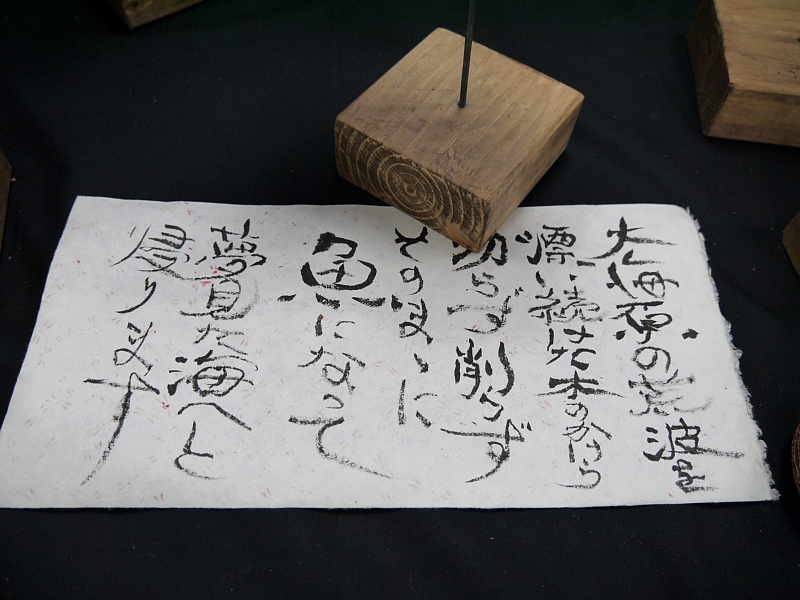 大海原の荒波を
漂い続けた木のかけら
切らず削らず
そのまゝに
魚になって
夢見た海へと
渡ります